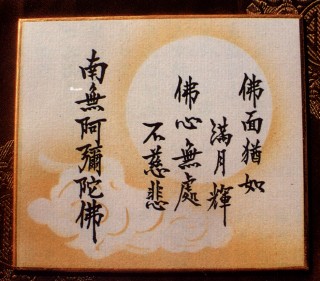 佛面猶如
滿月輝
佛心無處
不慈悲
南無阿彌陀佛